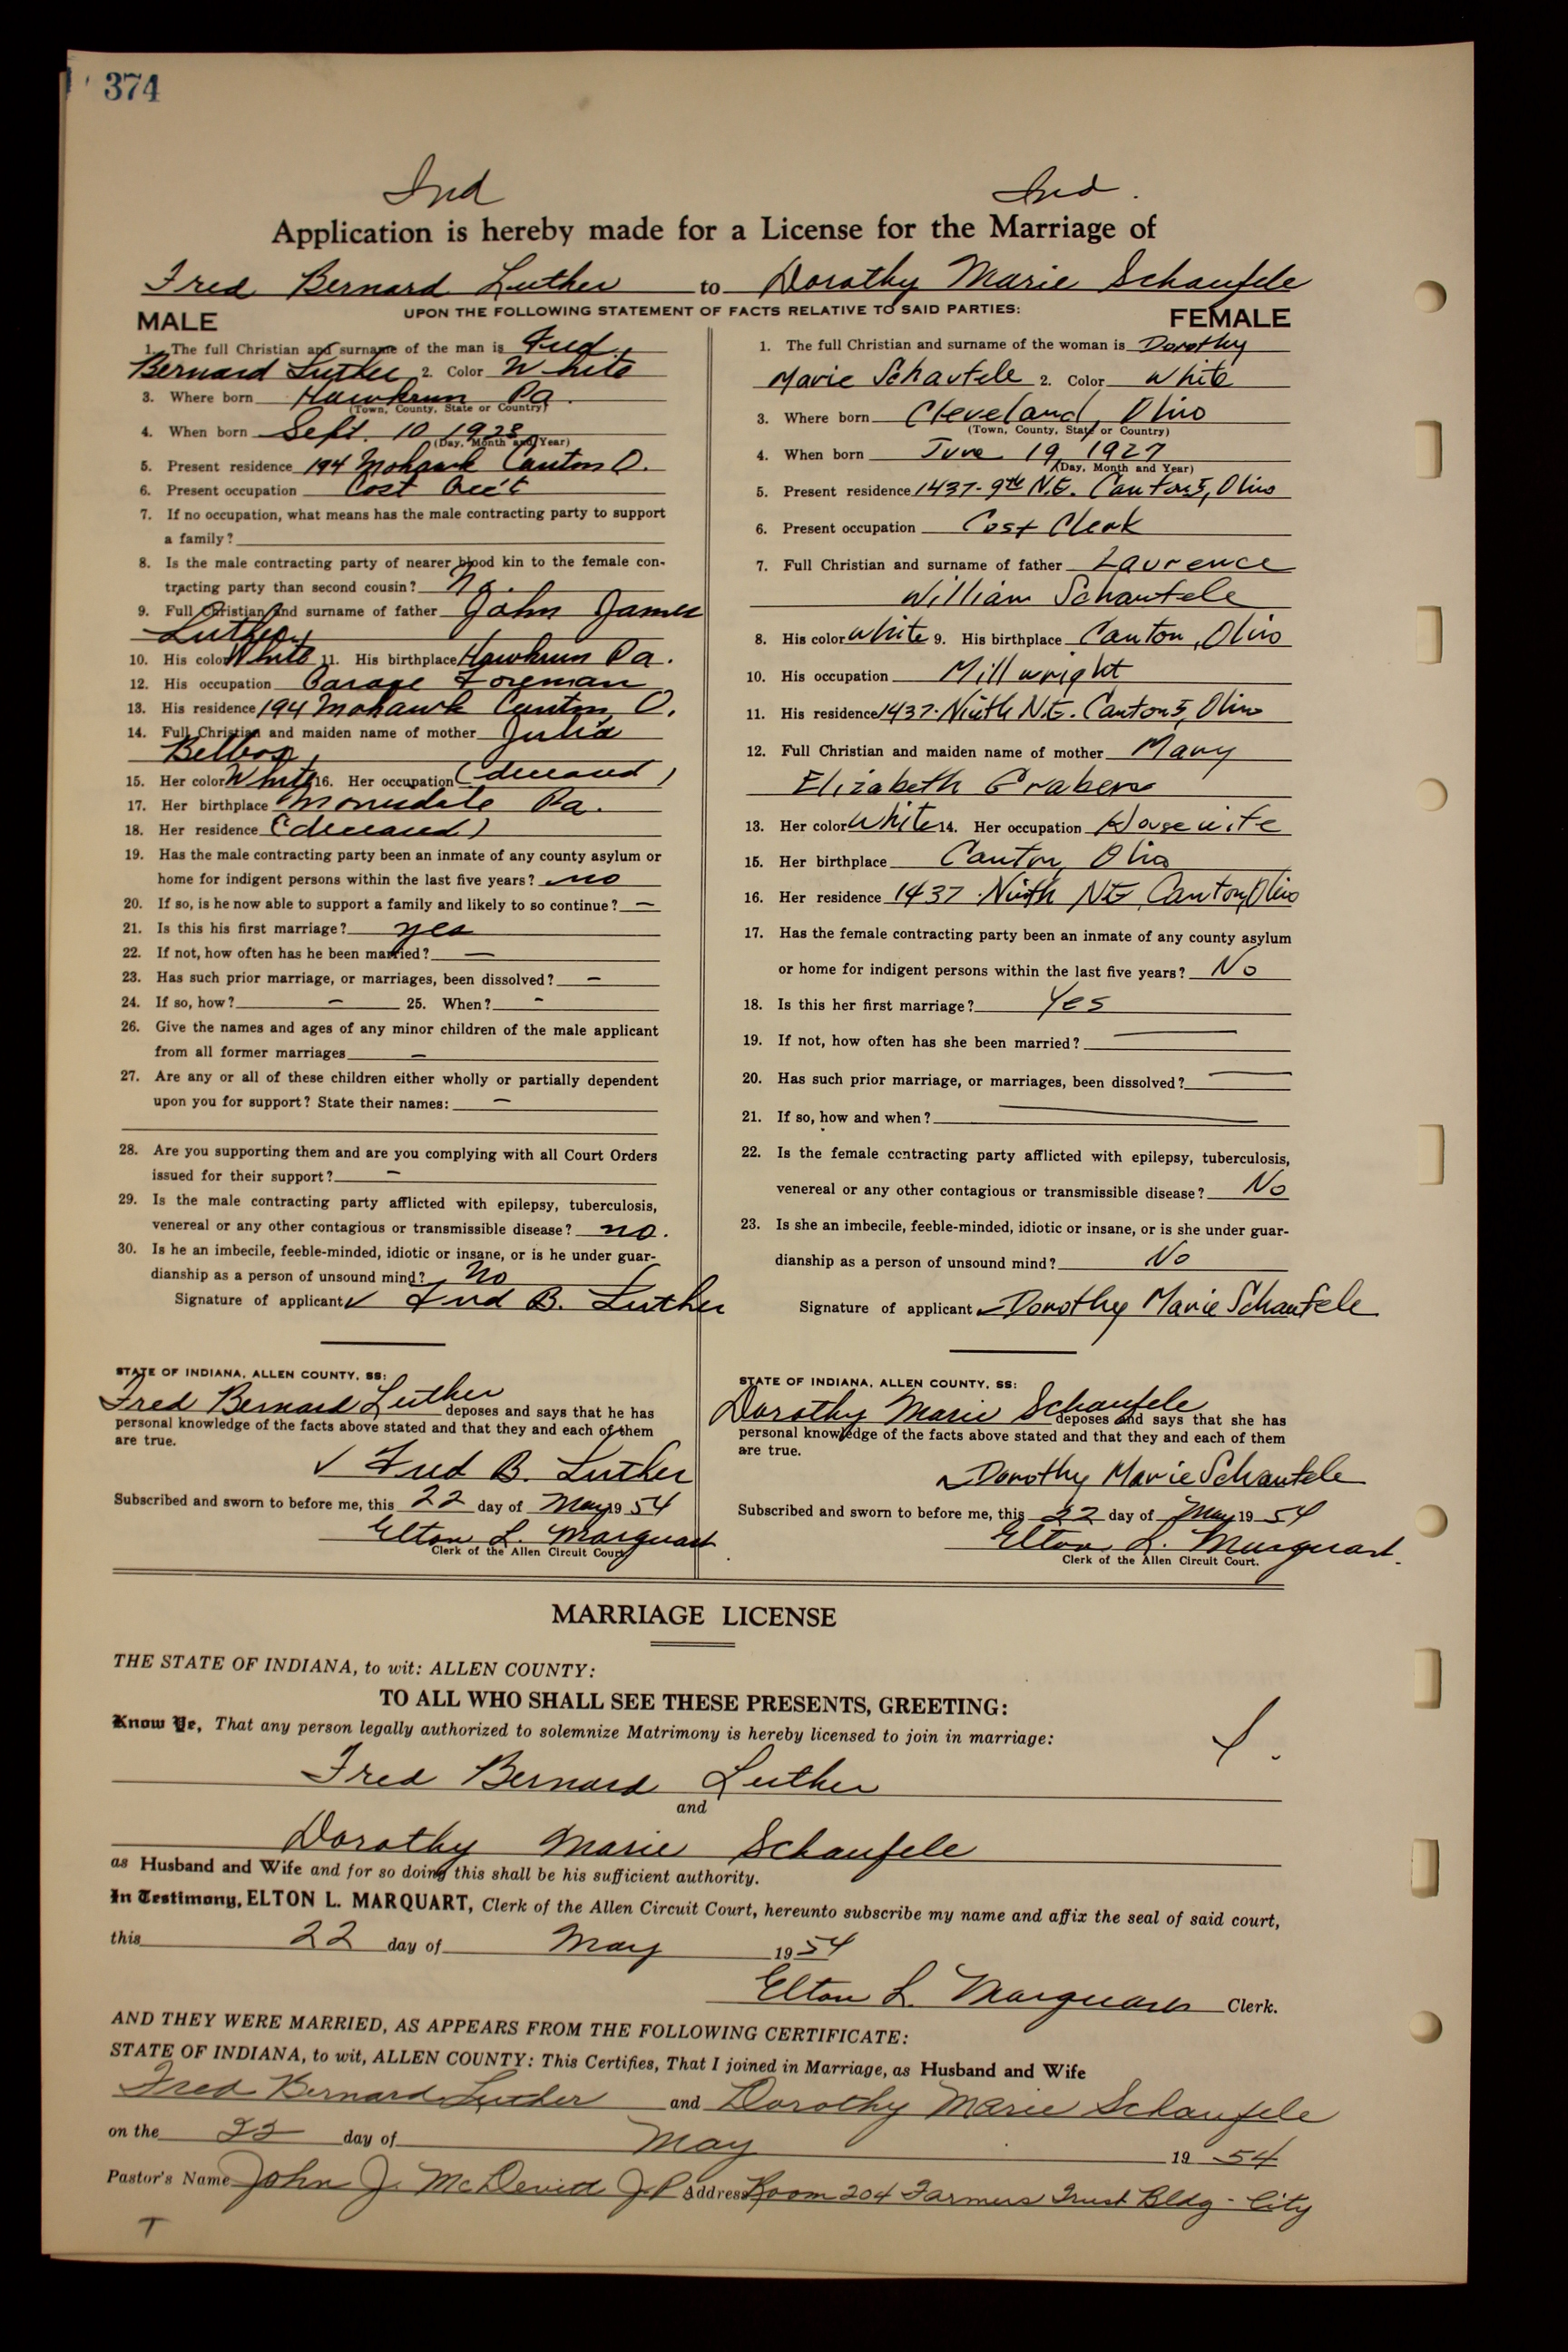 374
Ind Ind.
Application is hereby made for a License for the Marriage of
Fred Bernard Luther to Dorothy Marie Schaufele
UPON THE FOLLOWING STATEMENT OF FACTS RELATIVE TO SAID PARTIES:
MALE
1. The full Christian and surname of the man is Fred
Bernard Luther 2. Color White
3. Where born Hawkrun Pa.
(Town, County, State or Country)
4. When born Sept. 10 1928
(Day, Month and Year)
5. Present residence 194 Mohawk Canton O.
6. Present occupation Cost Acc't
7. If no occupation, what means has the male contracting party to support
a family?
8. Is the male contracting party of nearer blood kin to the female con-
tracting party than second cousin? No.
9. Full Christian and surname of father John James
Luther
10. His color White 11. His birthplace Hawkrun Pa.
12. His occupation Garage Foreman
13. His residence 194 Mohawk Canton, O.
14. Full Christian and maiden name of mother Julia
15. Her color White 16. Her occupation (deceased)
17. Her birthplace Morrisdale Pa.
18. Her residence (deceased)
19. Has the male contracting party been an inmate of any county asylum or
home for indigent persons within the last five years? no
20. If so, is he now able to support a family and likely to so continue? —
21. Is this his first marriage? yes
22. If not, how often has he been married? —
23. Has such prior marriage, or marriages, been dissolved? —
24. If so, how? — 25. When? -
26. Give the names and ages of any minor children of the male applicant
from all former marriages —
27. Are any or all of these children either wholly or partially dependent
upon you for support? State their names: —
28. Are you supporting them and are you complying with all Court Orders
issued for their support? —
29. Is the male contracting party afflicted with epilepsy, tuberculosis,
venereal or any other contagious or transmissible disease? no.
30. Is he an imbecile, feeble-minded, idiotic or insane, or is he under guar-
dianship as a person of unsound mind? no
Signature of applicant ✓ Fred B. Luther
STATE OF INDIANA, ALLEN COUNTY, SS:
Fred Bernard Luther deposes and says that he has
personal knowledge of the facts above stated and that they and each of them
are true.
✓ Fred B. Luther
Subscribed and sworn to before me, this 22 day of May 19 54
Elton L. Marquart
Clerk of the Allen Circuit Court
FEMALE
1. The full Christian and surname of the woman is Dorothy
Marie Schaufele 2. Color White
3. Where born Cleveland, Ohio
(Town, County, State or Country)
4. When born June 19, 1927
(Day, Month and Year)
5. Present residence 1437-9th N.E. Canton 5, Ohio
6. Present occupation Cost Clerk
7. Full Christian and surname of father Laurence
William Schaufele
8. His color white 9. His birthplace Canton, Ohio
10. His occupation Millwright
11. His residence 1437-Ninth N.E. Canton 5, Ohio
12. Full Christian and maiden name of mother Mary
Elizabeth
13. Her color White 14. Her occupation Housewife
15. Her birthplace Canton, Ohio
16. Her residence 1437 Ninth NE Canton, Ohio
17. Has the female contracting party been an inmate of any county asylum
or home for indigent persons within the last five years? No
18. Is this her first marriage? Yes
19. If not, how often has she been married? —
20. Has such prior marriage, or marriages, been dissolved? —
21. If so, how and when? —
22. Is the female contracting party afflicted with epilepsy, tuberculosis,
venereal or any other contagious or transmissible disease? No
23. Is she an imbecile, feeble-minded, idiotic or insane, or is she under guar-
dianship as a person of unsound mind? No
Signature of applicant Dorothy Marie Schaufele
STATE OF INDIANA, ALLEN COUNTY, SS:
Dorothy Marie Schaufele deposes and says that she has
personal knowledge of the facts above stated and that they and each of them
are true.
Dorothy Marie Schaufele
Subscribed and sworn to before me, this 22 day of May 19 54
Elton L. Marquart
Clerk of the Allen Circuit Court.
MARRIAGE LICENSE
THE STATE OF INDIANA, to wit: ALLEN COUNTY:
TO ALL WHO SHALL SEE THESE PRESENTS, GREETING:
Know Ye, That any person legally authorized to solemnize Matrimony is hereby licensed to join in marriage:
Fred Bernard Luther
and
Dorothy Marie Schaufele
as Husband and Wife and for so doing this shall be his sufficient authority.
In Testimony, ELTON L. MARQUART, Clerk of the Allen Circuit Court, hereunto subscribe my name and affix the seal of said court,
this 22 day of May 19 54
Elton L. Marquart Clerk.
AND THEY WERE MARRIED, AS APPEARS FROM THE FOLLOWING CERTIFICATE:
STATE OF INDIANA, to wit, ALLEN COUNTY: This Certifies, That I joined in Marriage, as Husband and Wife
Fred Bernard Luther and Dorothy Marie Schaufele
on the 22 day of May 19 54
Pastor's Name John J. McDevid J.P. Address Room 204 Farmers Trust Bldg - City
T